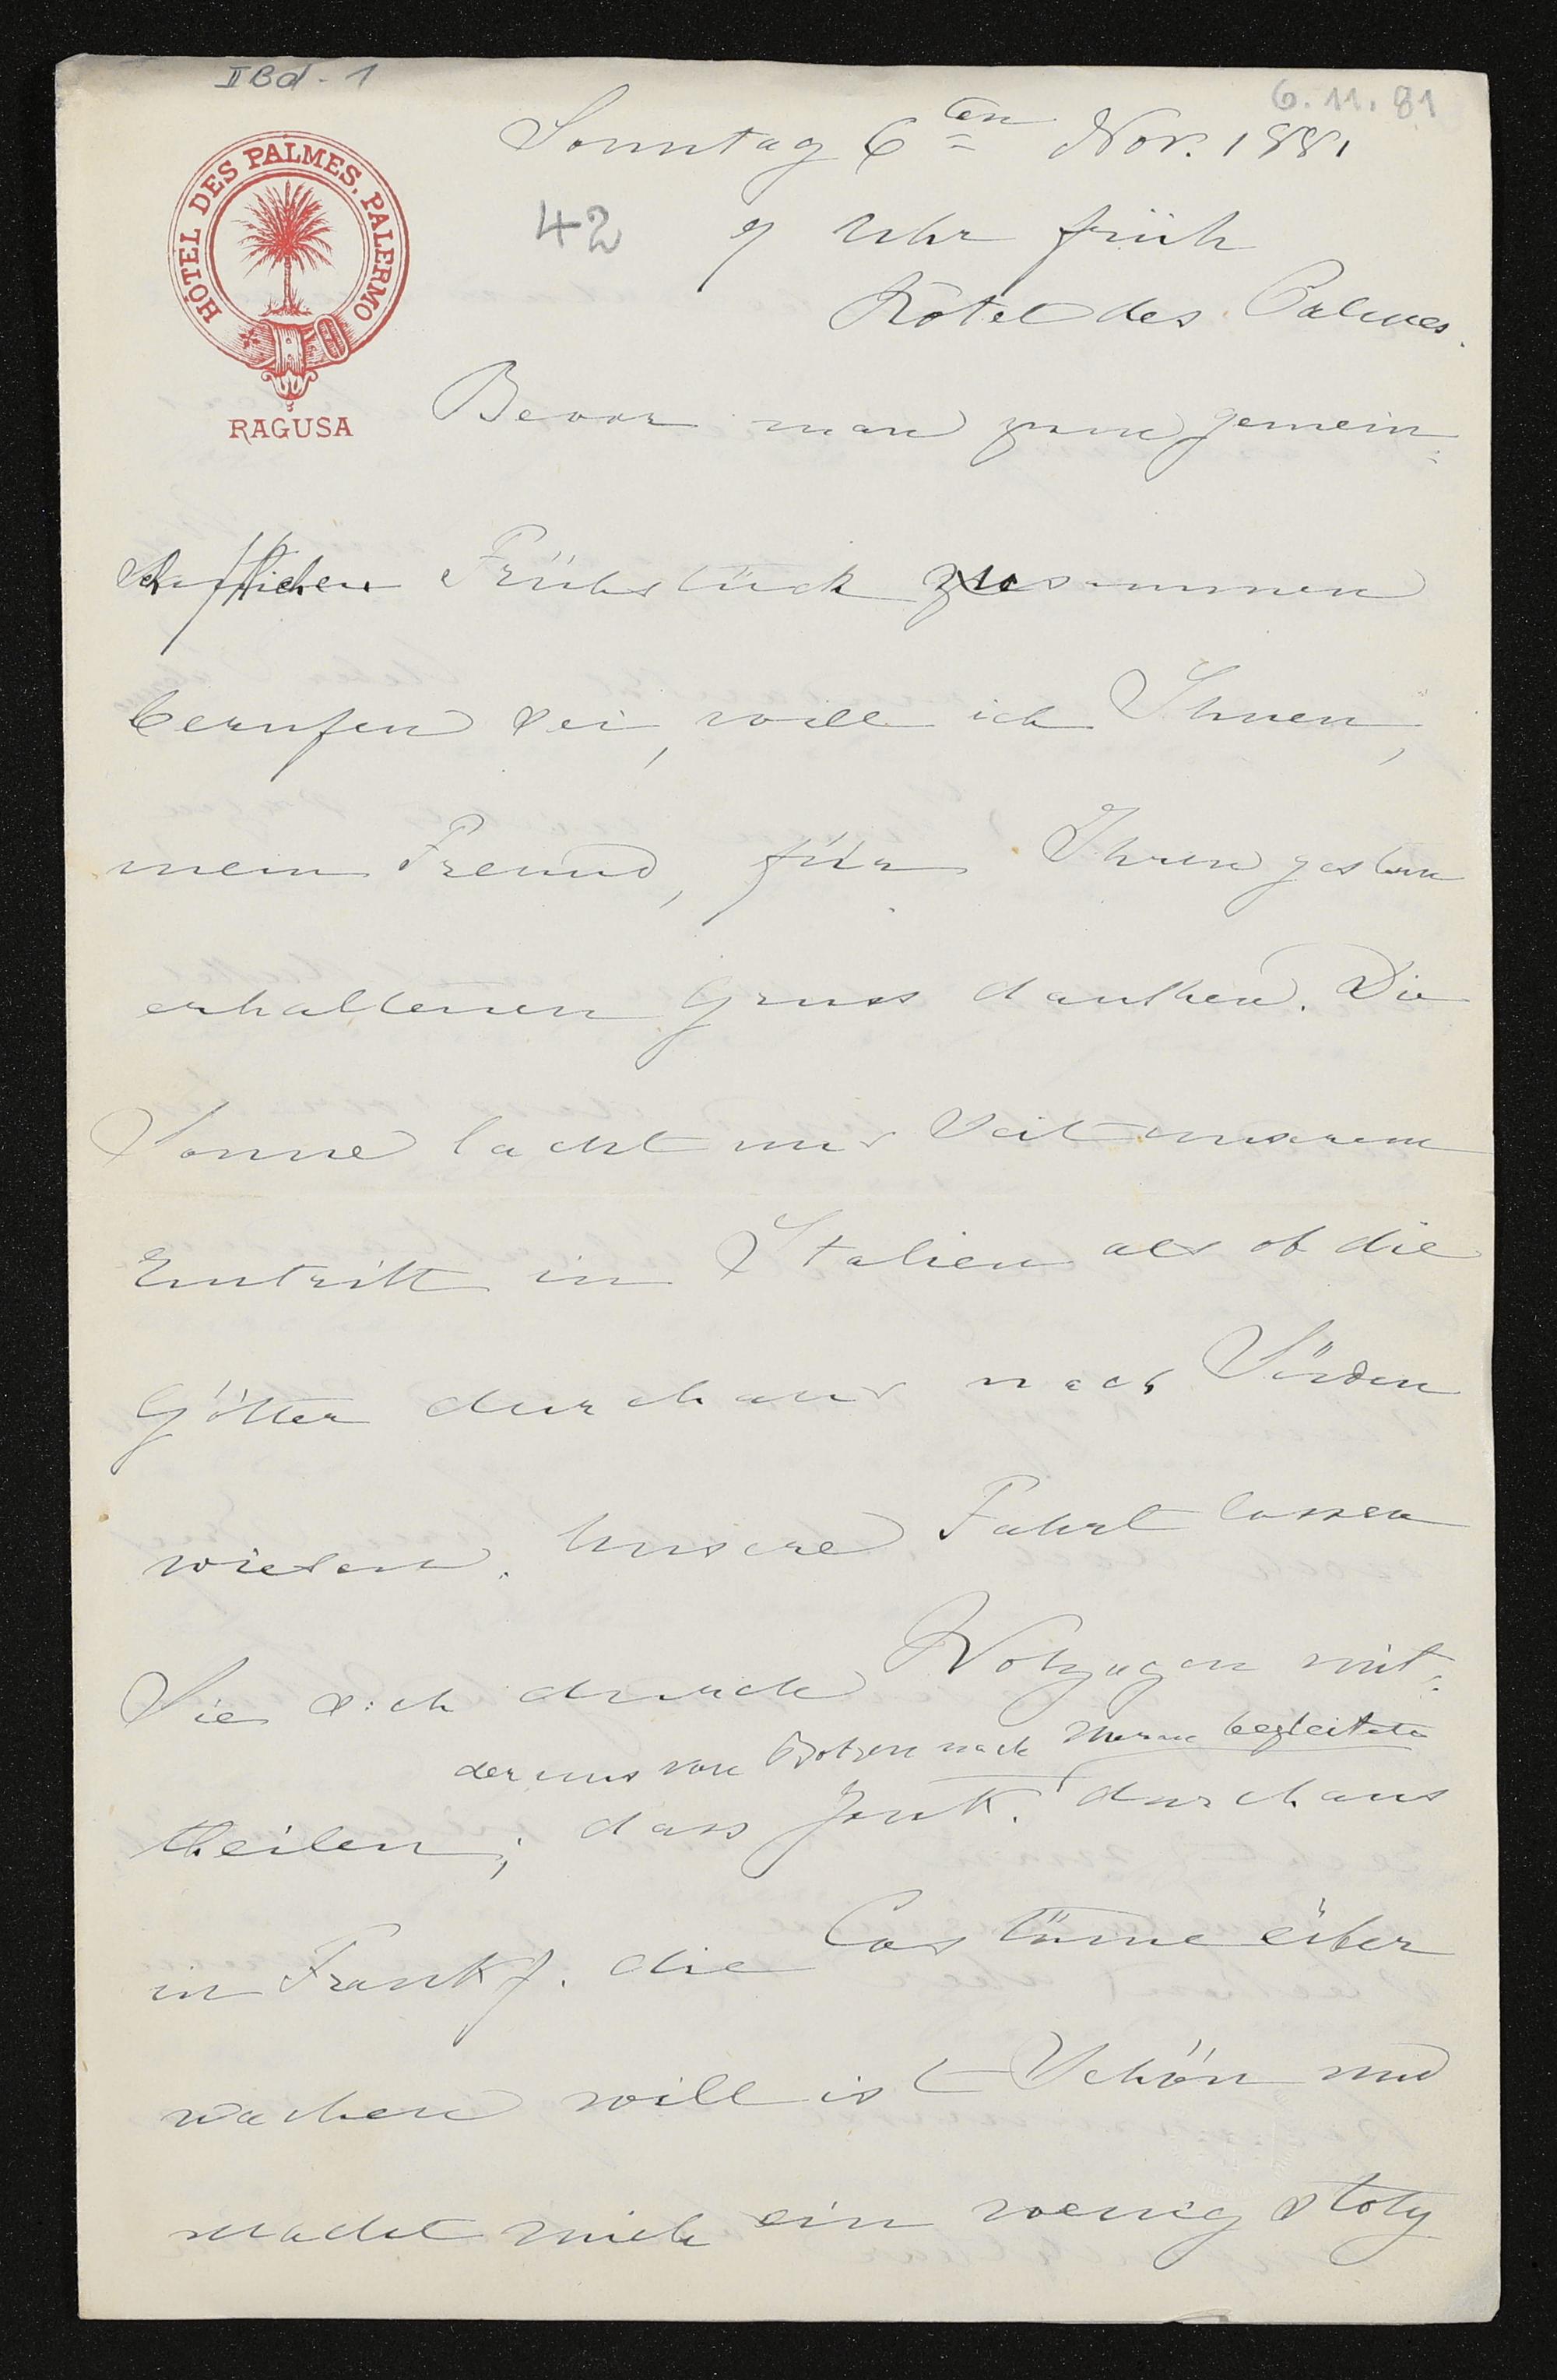 II Bd - 1
6. 11. 81
HÔTEL DES PALMES, PALERMO
RAGUSA
Sonntag 6ten Nov. 1881
42
9 Uhr früh
Hôtel des Palmes.
Bevor man zum gemein=
schaftlichen Frühstück zusammen
berufen sei, will ich Ihnen,
mein Freund, für Ihren gestern
erhaltenen Gruss danken. Die
Sonne lacht uns seit unserem
Eintritt in Italien als ob die
Götter durchaus nach Süden
wiesen. Unsere Fahrt lassen
Sie sich durch Wolzogen mit=
der uns von Botzen nach Meran begleitete
theilen; dass Jouk. durchaus
in Frankf. die Costüme über
wachen will ist schön und
macht mich ein wenig stolz